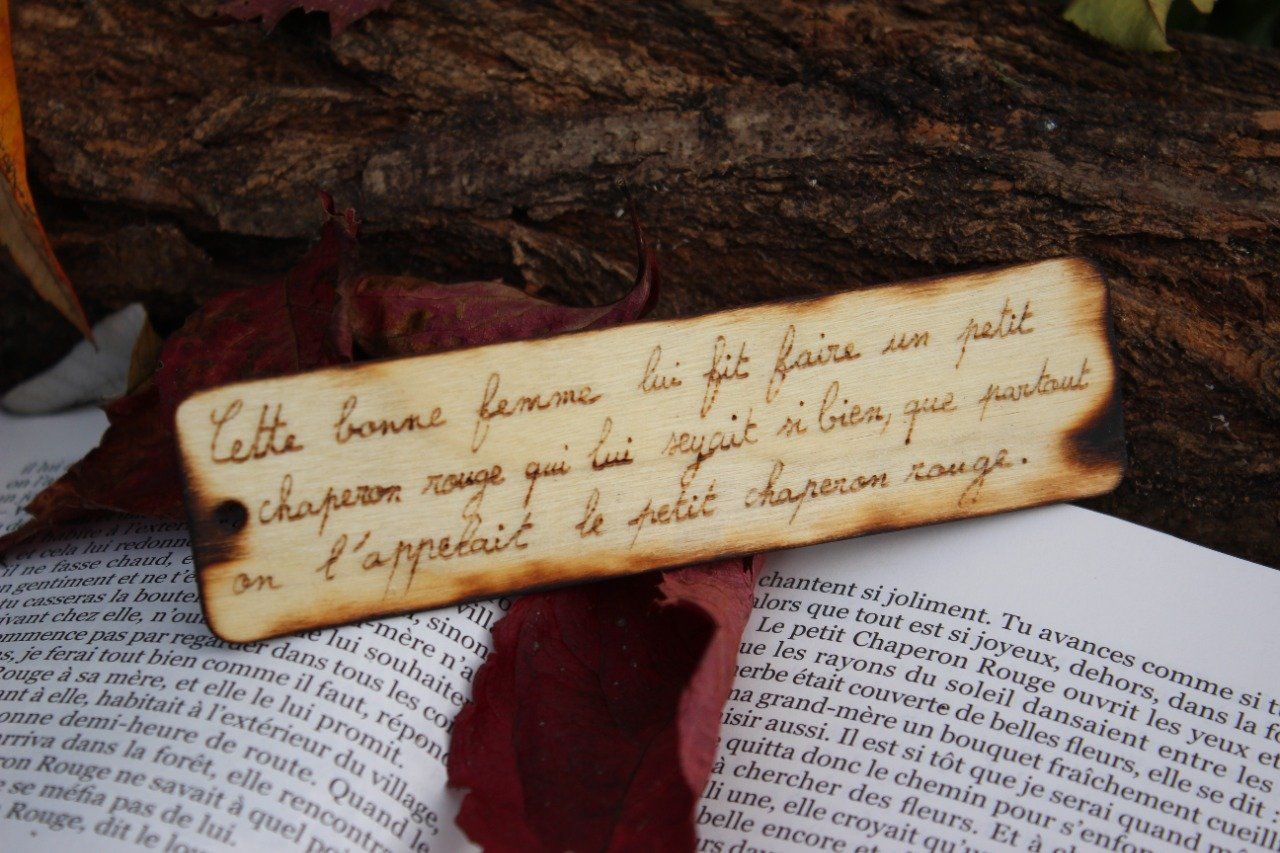 Cette bonne femme lui fit faire un petit
chaperon rouge qui lui seyait si bien, que partout
on l'appelait le petit chaperon rouge.
et cela lui redonne
il ne fasse chaud, e
gentiment et ne t'é
tu casseras la bouteil
vivant chez elle, n'ou
ommence pas par regarder dans tous les co
s, je ferai tout bien comme il faut, répon
Rouge à sa mère, et elle le lui promit.
ant à elle, habitait à l'extérieur du village,
onne demi-heure de route. Quand le
arriva dans la forêt, elle rencontr
ron Rouge ne savait à quel p
e se méfia pas de lui.
Rouge, dit le lou
village, sinon
mère n'a
lui souhaiter
chantent si joliment. Tu avances comme si tu
alors que tout est si joyeux, dehors, dans la fo
Le petit Chaperon Rouge ouvrit les yeux et
ue les rayons du soleil dansaient entre les
erbe était couverte de belles fleurs, elle se dit :
ma grand-mère un bouquet fraîchement cueilli
isir aussi. Il est si tôt que je serai quand mê
quitta donc le chemin pour s'enfon
à chercher des fleurs. Et à ch
li une, elle croyait qu'
belle encore et